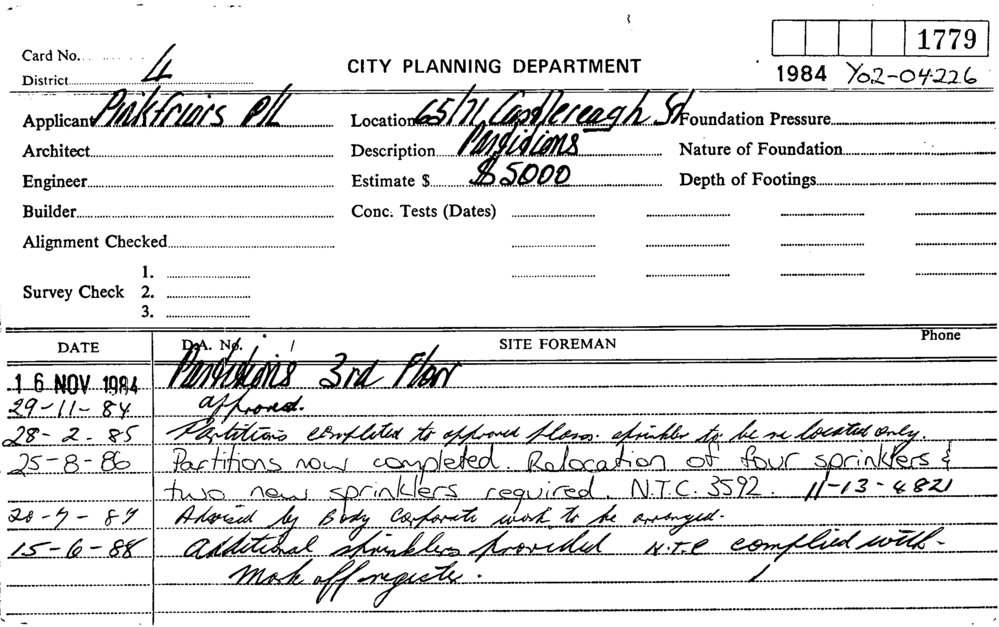 1779
Card No.
District 4
CITY PLANNING DEPARTMENT
1984 Y02-04226
Applicant Pinkfriars P/L
Location 65/71 Castlereagh St
Foundation Pressure
Architect
Description Partitions
Nature of Foundation
Engineer
Estimate $ $5000
Depth of Footings
Builder
Conc. Tests (Dates)
Alignment Checked
1.
Survey Check 2.
3.
DATE D.A. No. SITE FOREMAN Phone
16 NOV 1984 Partitions 3rd Floor
29-11-84 approved.
28-2-85 Partitions completed to approved plans. sprinkler to be relocated only.
25-8-86 Partitions now completed. Relocation of four sprinklers &
two new sprinklers required. N.T.C. 3592. 11-13-4821
20-7-87 Advised by Body Corporate work to be arranged.
15-6-88 Additional sprinklers provided N.T.C complied with-
Mark off register.